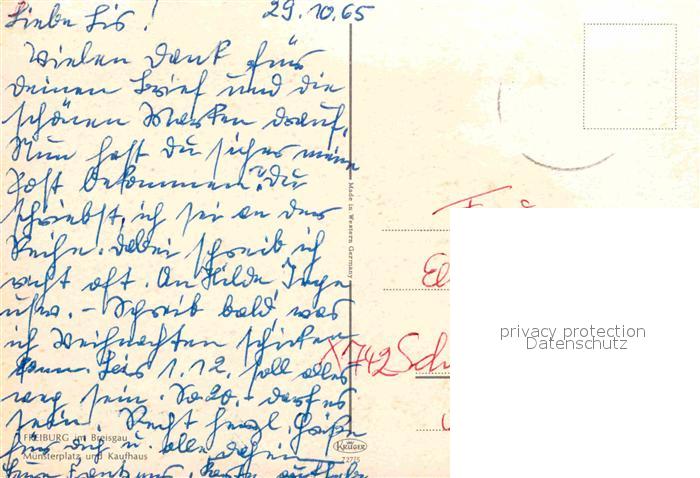 Liebe Lis! 29.10.65
Vielen Dank für
deinen Brief und die
schönen Marken drauf.
Nun hast Du sicher meine
Post bekommen? Du
schriebst, ich sei an der
Reihe. Dabei schreib ich
recht oft. An Hilde, Inge
usw. – Schreib bald, was
ich Weihnachten schicken
kann. Bis 1.12. soll alles
weg sein. So 20,- darf es
sein. Recht herzl. Grüße
für dich u. alle daheim
Made in Western Germany
FREIBURG im Breisgau
Münsterplatz und Kaufhaus
KRÜGER
727/5
X742 Sch
privacy protection
Datenschutz